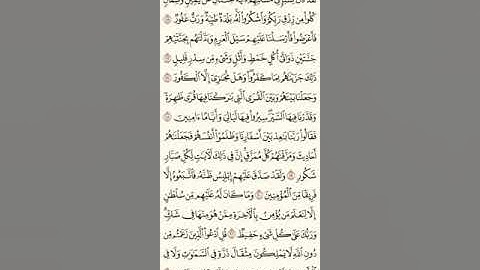 كُلُوا۟ مِن رِّزْقِ رَبِّكُمْ وَٱشْكُرُوا۟ لَهُۥ بَلْدَةٌ طَيِّبَةٌ وَرَبٌّ غَفُورٌ
فَأَعْرَضُوا۟ فَأَرْسَلْنَا عَلَيْهِمْ سَيْلَ ٱلْعَرِمِ وَبَدَّلْنَٰهُم بِجَنَّتَيْهِمْ
جَنَّتَيْنِ ذَوَاتَىْ أُكُلٍ خَمْطٍ وَأَثْلٍ وَشَىْءٍ مِّن سِدْرٍ قَلِيلٍ
ذَٰلِكَ جَزَيْنَٰهُم بِمَا كَفَرُوا۟ وَهَلْ نُجَٰزِىٓ إِلَّا ٱلْكَفُورَ
وَجَعَلْنَا بَيْنَهُمْ وَبَيْنَ ٱلْقُرَى ٱلَّتِى بَٰرَكْنَا فِيهَا قُرًى ظَٰهِرَةً
وَقَدَّرْنَا فِيهَا ٱلسَّيْرَ سِيرُوا۟ فِيهَا لَيَالِىَ وَأَيَّامًا ءَامِنِينَ
فَقَالُوا۟ رَبَّنَا بَٰعِدْ بَيْنَ أَسْفَارِنَا وَظَلَمُوٓا۟ أَنفُسَهُمْ فَجَعَلْنَٰهُمْ
أَحَادِيثَ وَمَزَّقْنَٰهُمْ كُلَّ مُمَزَّقٍ إِنَّ فِى ذَٰلِكَ لَءَايَٰتٍ لِّكُلِّ صَبَّارٍ
شَكُورٍ وَلَقَدْ صَدَّقَ عَلَيْهِمْ إِبْلِيسُ ظَنَّهُۥ فَٱتَّبَعُوهُ إِلَّا
فَرِيقًا مِّنَ ٱلْمُؤْمِنِينَ وَمَا كَانَ لَهُۥ عَلَيْهِم مِّن سُلْطَٰنٍ
إِلَّا لِنَعْلَمَ مَن يُؤْمِنُ بِٱلْءَاخِرَةِ مِمَّنْ هُوَ مِنْهَا فِى شَكٍّ
وَرَبُّكَ عَلَىٰ كُلِّ شَىْءٍ حَفِيظٌ قُلِ ٱدْعُوا۟ ٱلَّذِينَ زَعَمْتُم مِّن
دُونِ ٱللَّهِ لَا يَمْلِكُونَ مِثْقَالَ ذَرَّةٍ فِى ٱلسَّمَٰوَٰتِ وَلَا فِى